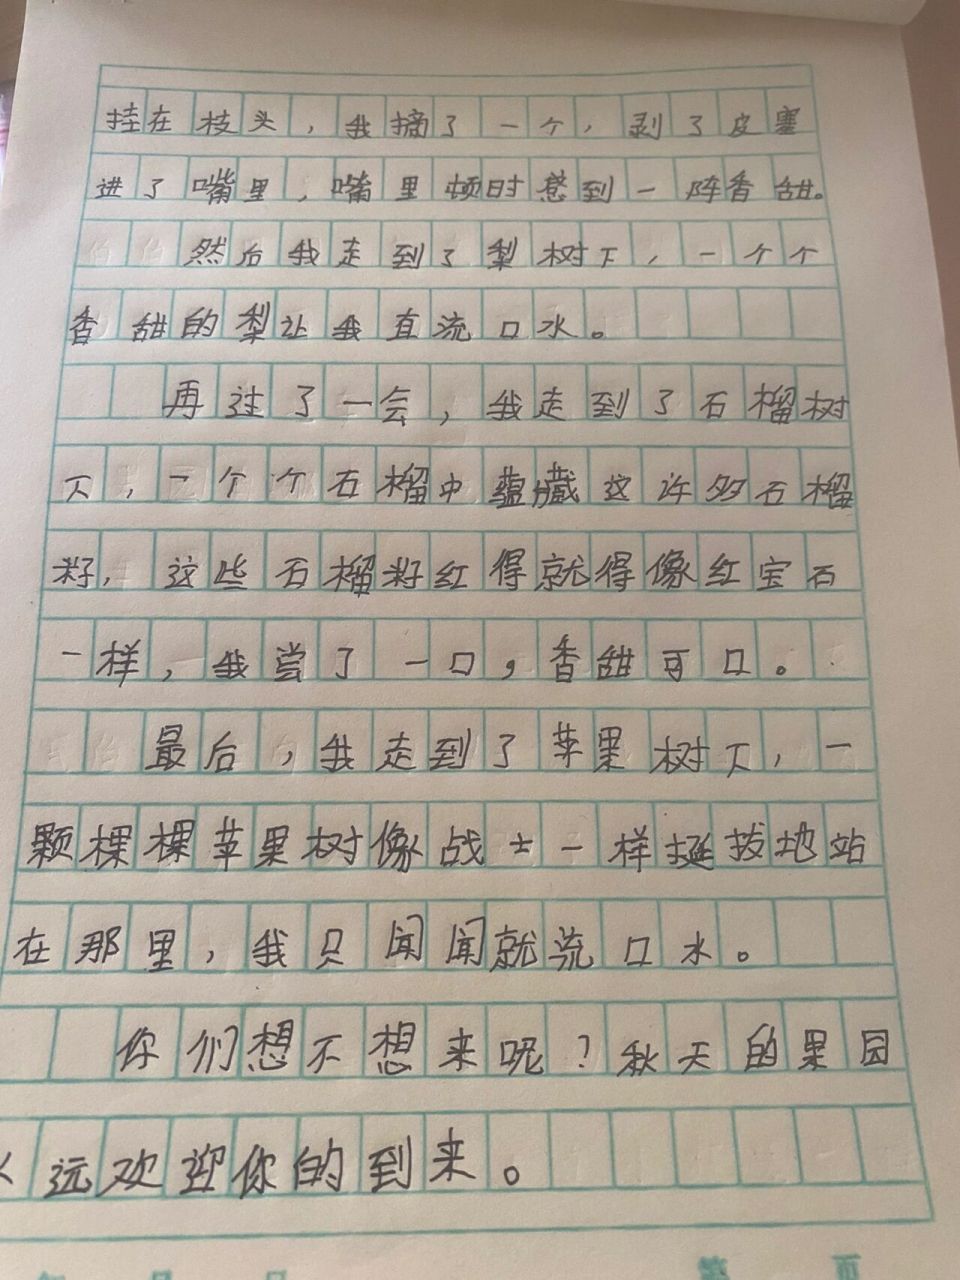 挂在枝头，我摘了一个，剥了皮塞
进了嘴里，嘴里顿时感到一阵香甜。
然后我走到了梨树下，一个个
香甜的梨让我直流口水。
再过了一会，我走到了石榴树
下，一个个石榴中蕴藏这许多石榴
籽，这些石榴籽红得就得像红宝石
一样，我尝了一口，香甜可口。
最后，我走到了苹果树下，一
颗棵棵苹果树像战士一样挺拔地站
在那里，我只闻闻就流口水。
你们想不想来呢？秋天的果园
远欢迎你的到来。
第 页